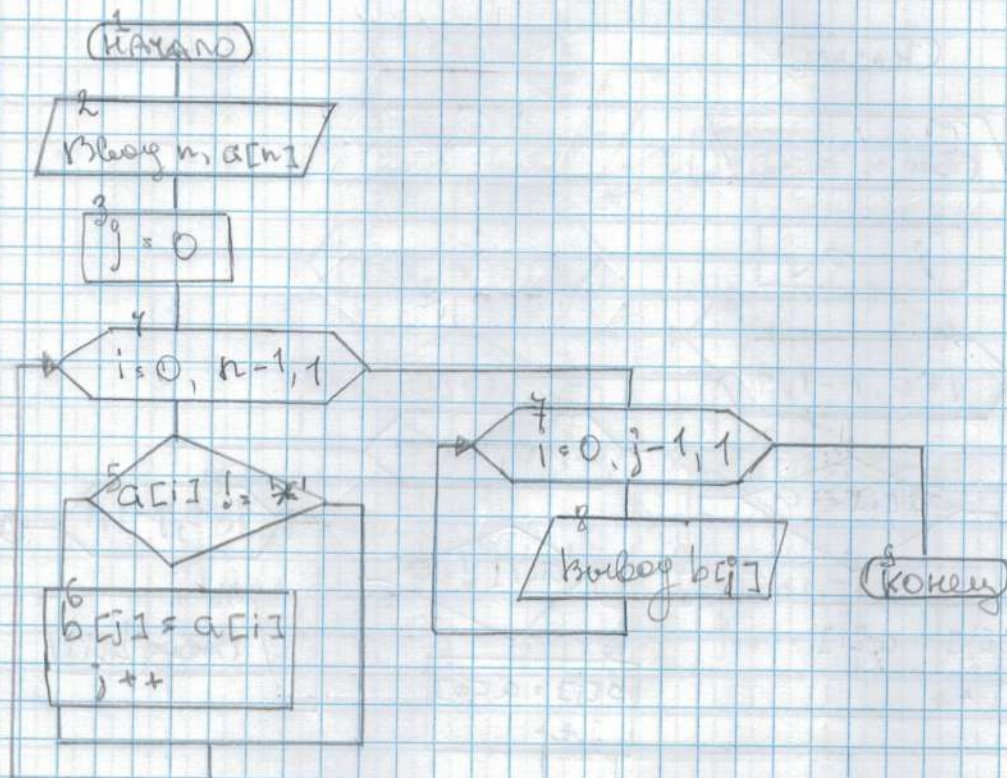 1
НАЧАЛО
2
Ввод n, a[n]
3
j = 0
4
i = 0, n-1, 1
5
a[i] != '*'
6
b[j] = a[i]
j++
7
i = 0, j-1, 1
8
Вывод b[j]
9
Конец